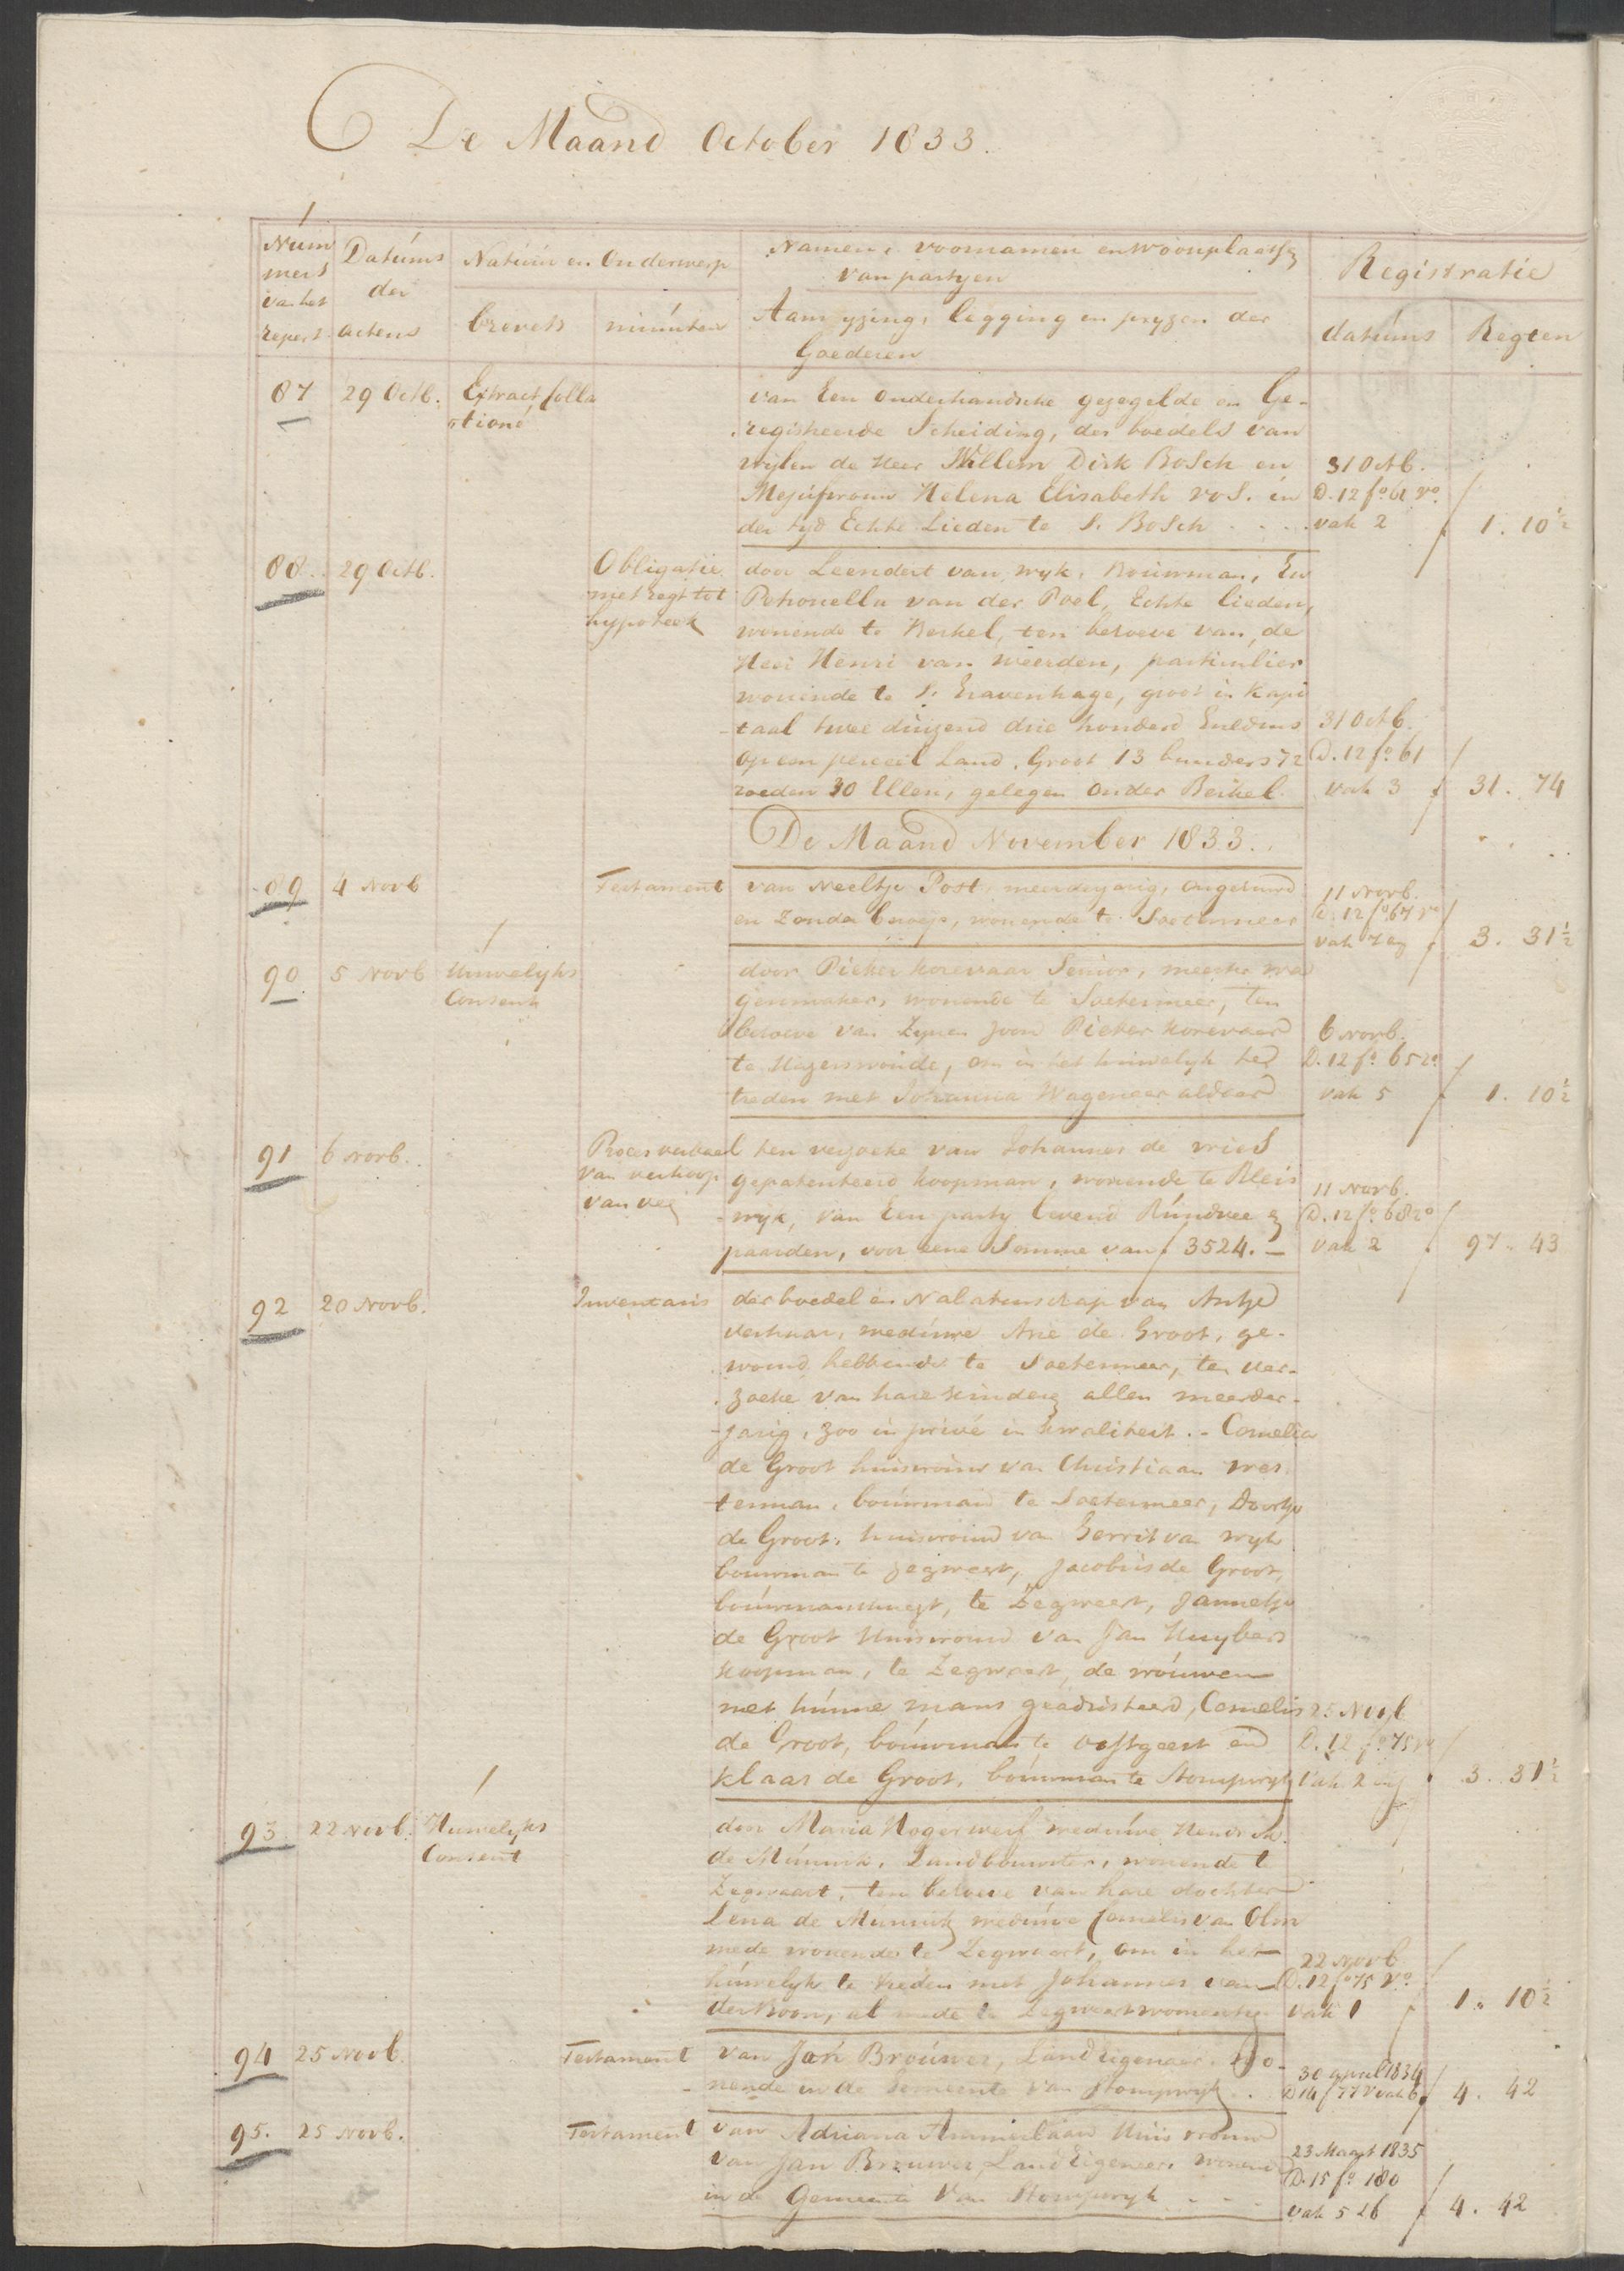 De Maand October 1833.
Num
mers
van het
repert.
Datums
der
actens
Natuur en Onderwerp
brevets
minuten
Namen, voornamen en Woonplaatsen
van partyen
Aanwyzing, legging en pryzen der
Goederen
Registratie
datums
Regten
87
29 Octb.
Extract Colla
tioné
van Een onderhandsche gezegelde en Ge-
registreerde Scheiding, der boedels van
wijlen de Heer Willem Dirk Bosch en
Mejufvrouw Helena Elisabeth Vos. in
der tyd Echte Lieden te S. Bosch . . . .
31 Octb.
D. 12 fo. 61 vo.
vak 2
f 1. 10½
88.
29 Octb.
Obligatie
met regt tot
hypoteek
door Leendert van wyk, Bouwman, En
Petronella van der Poel, Echte lieden,
wonende te Berkel, ten behoeve van, de
Heer Henri van weerden, particulier
wonende te S. Gravenhage, groot in Kapi
-taal twee duizend drie honderd Guldens
op een perceel Land, Groot 13 bunders 72
roeden 30 Ellen, gelegen onder Berkel.
31 Octb.
D. 12 fo. 61
vak 3
f 31. 74
De Maand November 1833.
89
4 Novb
Testament
van Neeltje Post, meerderjarig, ongehuwd
en Zonder beroep, wonende te Soetermeer
11 Novb.
D. 12 fo. 67 vo
vak 7 en
f 3. 31½
90
5 Novb
Huwelyks
Consent
door Pieter Korevaar Senior, meester wa
genmaker, wonende te Soetermeer, Ten
behoeve van Zynen Zoon Pieter Korevaar
te Hazerswoude, om in het huwelyk te
treden met Johanna Wagenaar aldaar
6 Novb.
D. 12 fo. 65 ro
vak 5
f 1. 10½
91
6 Novb.
Proces verbaal
van verkoop
van vee
ten verzoeke van Johannes de vries
gepatenteerd koopman, wonende te Bleis
-wyk, van Een party levend Rundvee en
paarden, voor eene Somme van f 3524. —
11 Novb.
D. 12 fo. 68 ro
vak 2
f 97. 43
92
20 Novb.
Inventaris
der boedel en Nalatenschap van Antje
Verhaar, weduwe Arie de Groot, ge-
woond hebbende te Soetermeer, ten ver-
zoeke van hare kinderen allen meerder-
-jarig, zoo in privé in kwaliteit. - Cornelia
de Groot huisvrouw van Christiaan Wes
terman, bouwman te Soetermeer, Doortje
de Groot, huisvrouw van Gerrit van wyk
bouwman te Zegwaart, Jacobus de Groot,
bouwmansknegt, te Zegwaart, Jannetje
de Groot Huisvrouw van Jan Huybers
koopman, te Zegwaart, de vrouwen
met hunne mans geadsisteerd, Cornelis
de Groot, bouwman te Oestgeest en
Klaas de Groot, bouwman te Stompwyk
25 Novb
D. 12 fo. 75 vo
Vak 2 en
f 3. 31½
93
22 Novb.
Huwelyks
Consent
door Maria Hogerwerf weduwe Hendrik
de Munnik, Landbouwster, wonende te
Zegwaart, ten behoeve van hare dochter
Lena de Munnik weduwe Cornelis van
mede wonende te Zegwaart, om in het
huwelyk te treden met Johannes van
der Boon, al mede te Zegwaart wonende
22 Novb
D. 12 fo 75 Vo.
vak 1
f 1. 10½
94
25 Novb.
Testament
van Jan Brouwer, Landeigenaar, wo-
nende in de Gemeente van Stompwyk . .
30 april 1834
D 14 f 77 V vak 6
f 4. 42
95.
25 Novb.
Testament
van Adriana Ammerlaan Huis vrouw
van Jan Brouwer, Land Eigenaar, wonend
in de Gemeente Van Stompwyk . . .
23 Maart 1835
D. 15 fo. 180
vak 5 &6
f 4. 42